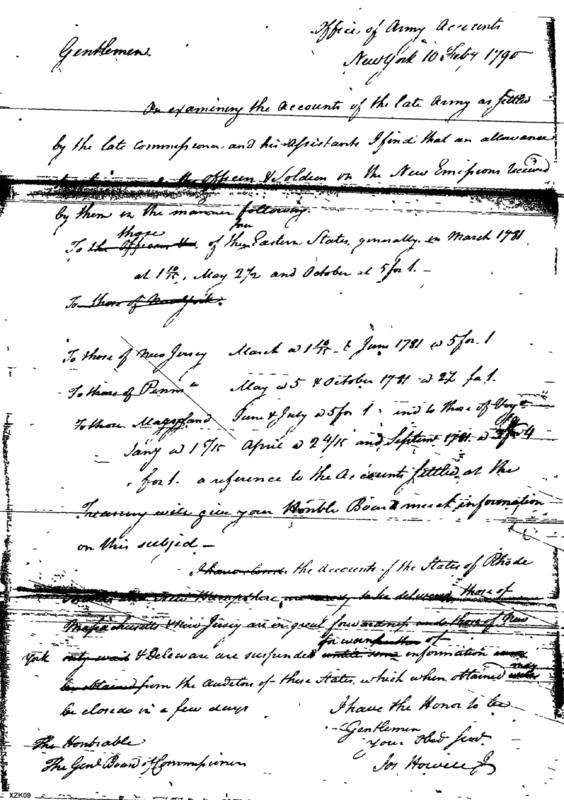 Office of Army Accounts
Gentlemen New York 10 Feby 1790
On examining the Accounts of the late Army as settled
by the late Commissioner and his Assistants I find that an allowance
the Officers & Soldiers on the New Emissions received
by them in the manner following.
those four
To the Officers of the Eastern States, generally, in March 1781
at 1 May 2½ and October at 5 for 1. –
To those of New York.
To those of New Jersey March a 1 & June 1781 a 5 for 1
To those of Penna May a 5 & October 1781 a for 1.
To those Maryland June & July a 5 for 1 and to those of
Jany a 1 5/15 April a 2 4/15 and Septemr 1781 a 4
for 1. a reference to the Accounts settled at the
Treasury will give your Honble Board much information
on this subject –
I have the accounts of the States of Rhode
New Hampshire to be delivered those of
Massachusetts & New Jersey are in great forwardness and those of New
for want of
York & Delaware are suspended information
may
be obtained from the Auditors of these States, which when obtained
be closed in a few days
I have the Honor to be
Gentlemen
Your Obed Servt
The Honorable Jos Howell Jr
The Genl Board of Commissioners
XZK09